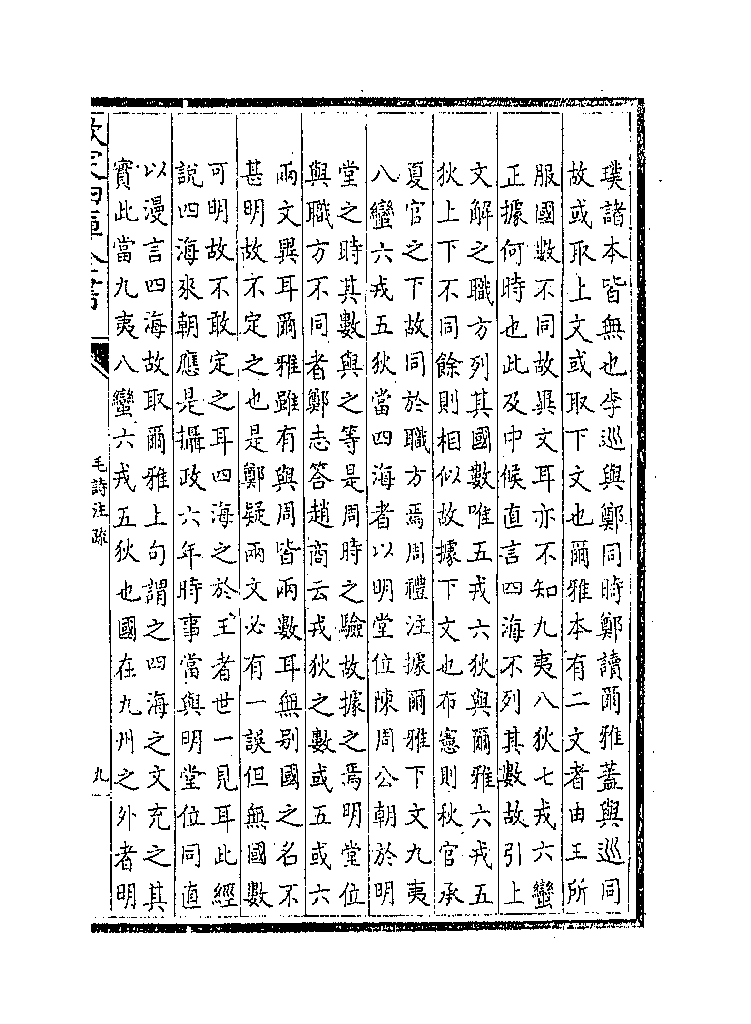 璞諸本皆無也李巡與鄭同時鄭讀爾雅蓋與巡同
故或取上文或取下文也爾雅本有二文者由王所
服國數不同故異文耳亦不知九夷八狄七戎六蠻
正據何時也此及中候直言四海不列其數故引上
文解之職方列其國數唯五戎六狄與爾雅六戎五
狄上下不同餘則相似故據下文也布憲則秋官承
夏官之下故同於職方焉周禮注據爾雅下文九夷
八蠻六戎五狄當四海者以明堂位陳周公朝於明
堂之時其數與之等是周時之驗故據之焉明堂位
與職方不同者鄭志答趙商云戎狄之數或五或六
兩文異耳爾雅雖有與周皆兩數耳無别國之名不
甚明故不定之也是鄭疑兩文必有一誤但無國數
可明故不敢定之耳四海之於王者世一見耳此經
說四海來朝應是攝政六年時事當與明堂位同直
以漫言四海故取爾雅上句謂之四海之文充之其
實此當九夷八蠻六戎五狄也國在九州之外者明
欽定四庫全書
毛詩注疏
九